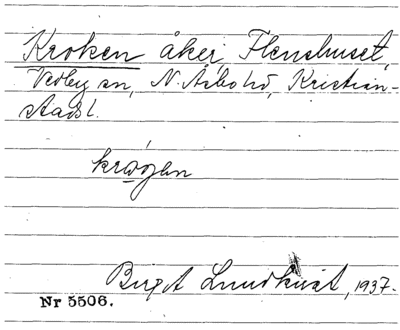 Kroken åker, Flenshuset,
Vedby sn, N. Åsbo hd, Kristian-
stads l.
Birgit Lundkvist, 1937.
Nr 5506.